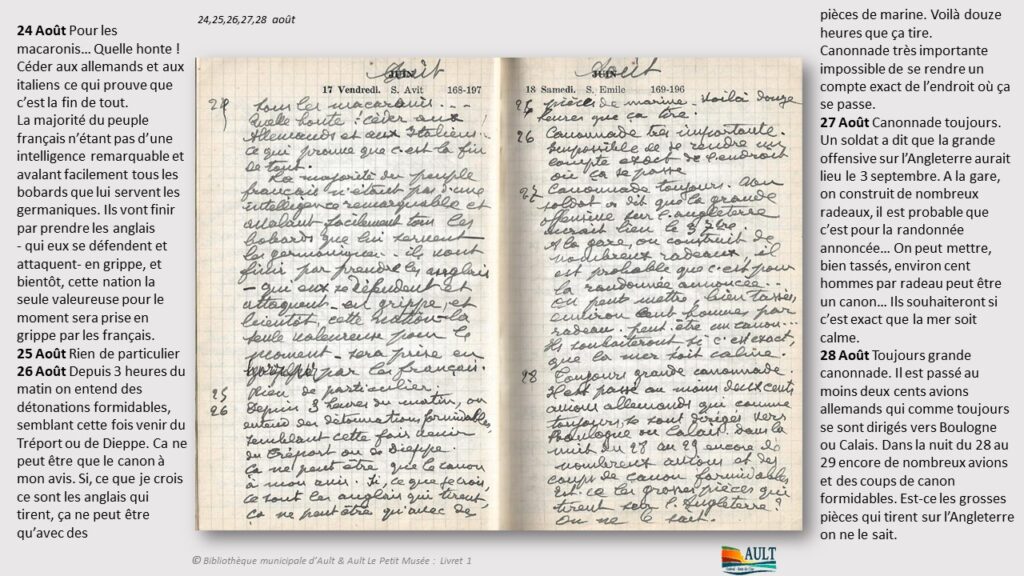 24,25,26,27,28 août
24 Août Pour les
macaronis… Quelle honte !
Céder aux allemands et aux
italiens ce qui prouve que
c’est la fin de tout.
La majorité du peuple
français n’étant pas d’une
intelligence remarquable et
avalant facilement tous les
bobards que lui servent les
germaniques. Ils vont finir
par prendre les anglais
- qui eux se défendent et
attaquent- en grippe, et
bientôt, cette nation la
seule valeureuse pour le
moment sera prise en
grippe par les français.
25 Août Rien de particulier
26 Août Depuis 3 heures du
matin on entend des
détonations formidables,
semblant cette fois venir du
Tréport ou de Dieppe. Ca ne
peut être que le canon à
mon avis. Si, ce que je crois
ce sont les anglais qui
tirent, ça ne peut être
qu’avec des
JUIN
Août
17 Vendredi. S. Avit 168-197
24 tous les macaronis...
Quelle honte : céder aux
Allemands et aux Italiens.
ce qui prouve que c'est la fin
de tout.
La majorité du peuple
français n'étant pas d'une
intelligence remarquable et
avalant facilement tous les
bobards que lui servent
les germaniques.. ils vont
finir par prendre les anglais
- qui eux se défendent et
attaquent - en grippe, et
bientôt, cette nation - la
seule valeureuse pour le
moment - sera prise en
grippe par les français.
25 Rien de particulier.
26 Depuis 3 heures du matin, on
entend des détonations formidables,
semblant cette fois venir
du Tréport ou de Dieppe.
Ça ne peut être que le canon
à mon avis. Si, ce que je crois,
ce sont les anglais qui tirent,
ça ne peut être qu'avec des
JUIN
Août
18 Samedi. S. Emile 169-196
26 pièces de marine. Voilà douze
heures que ça tire.
26 Canonnade très importante.
Impossible de se rendre un
compte exact de l'endroit
où ça se passe
27 Canonnade toujours. Un
soldat a dit que la grande
offensive sur l'angleterre
aurait lieu le 3 7bre.
A la gare, on construit de
nombreux radeaux, il
est probable que c'est pour
la randonnée annoncée...
On peut mettre, bien tassés,
environ cent hommes par
radeau. peut être un canon...
Ils souhaiteront si c'est exact,
que la mer soit calme.
28 Toujours grande canonnade.
Il est passé au moins deux cents
avions allemands qui comme
toujours, se sont dirigés vers
Boulogne ou Calais. dans la
nuit du 28 au 29 encore de
nombreux avions et des
coups de canon formidables
Est-ce les grosses pièces qui
tirent sur l'Angleterre ?
On ne le sait.
pièces de marine. Voilà douze
heures que ça tire.
Canonnade très importante
impossible de se rendre un
compte exact de l’endroit où ça
se passe.
27 Août Canonnade toujours.
Un soldat a dit que la grande
offensive sur l’Angleterre aurait
lieu le 3 septembre. A la gare,
on construit de nombreux
radeaux, il est probable que
c’est pour la randonnée
annoncée… On peut mettre,
bien tassés, environ cent
hommes par radeau peut être
un canon… Ils souhaiteront si
c’est exact que la mer soit
calme.
28 Août Toujours grande
canonnade. Il est passé au
moins deux cents avions
allemands qui comme toujours
se sont dirigés vers Boulogne
ou Calais. Dans la nuit du 28 au
29 encore de nombreux avions
et des coups de canon
formidables. Est-ce les grosses
pièces qui tirent sur l’Angleterre
on ne le sait.
© Bibliothèque municipale d’Ault & Ault Le Petit Musée : Livret 1
AULT